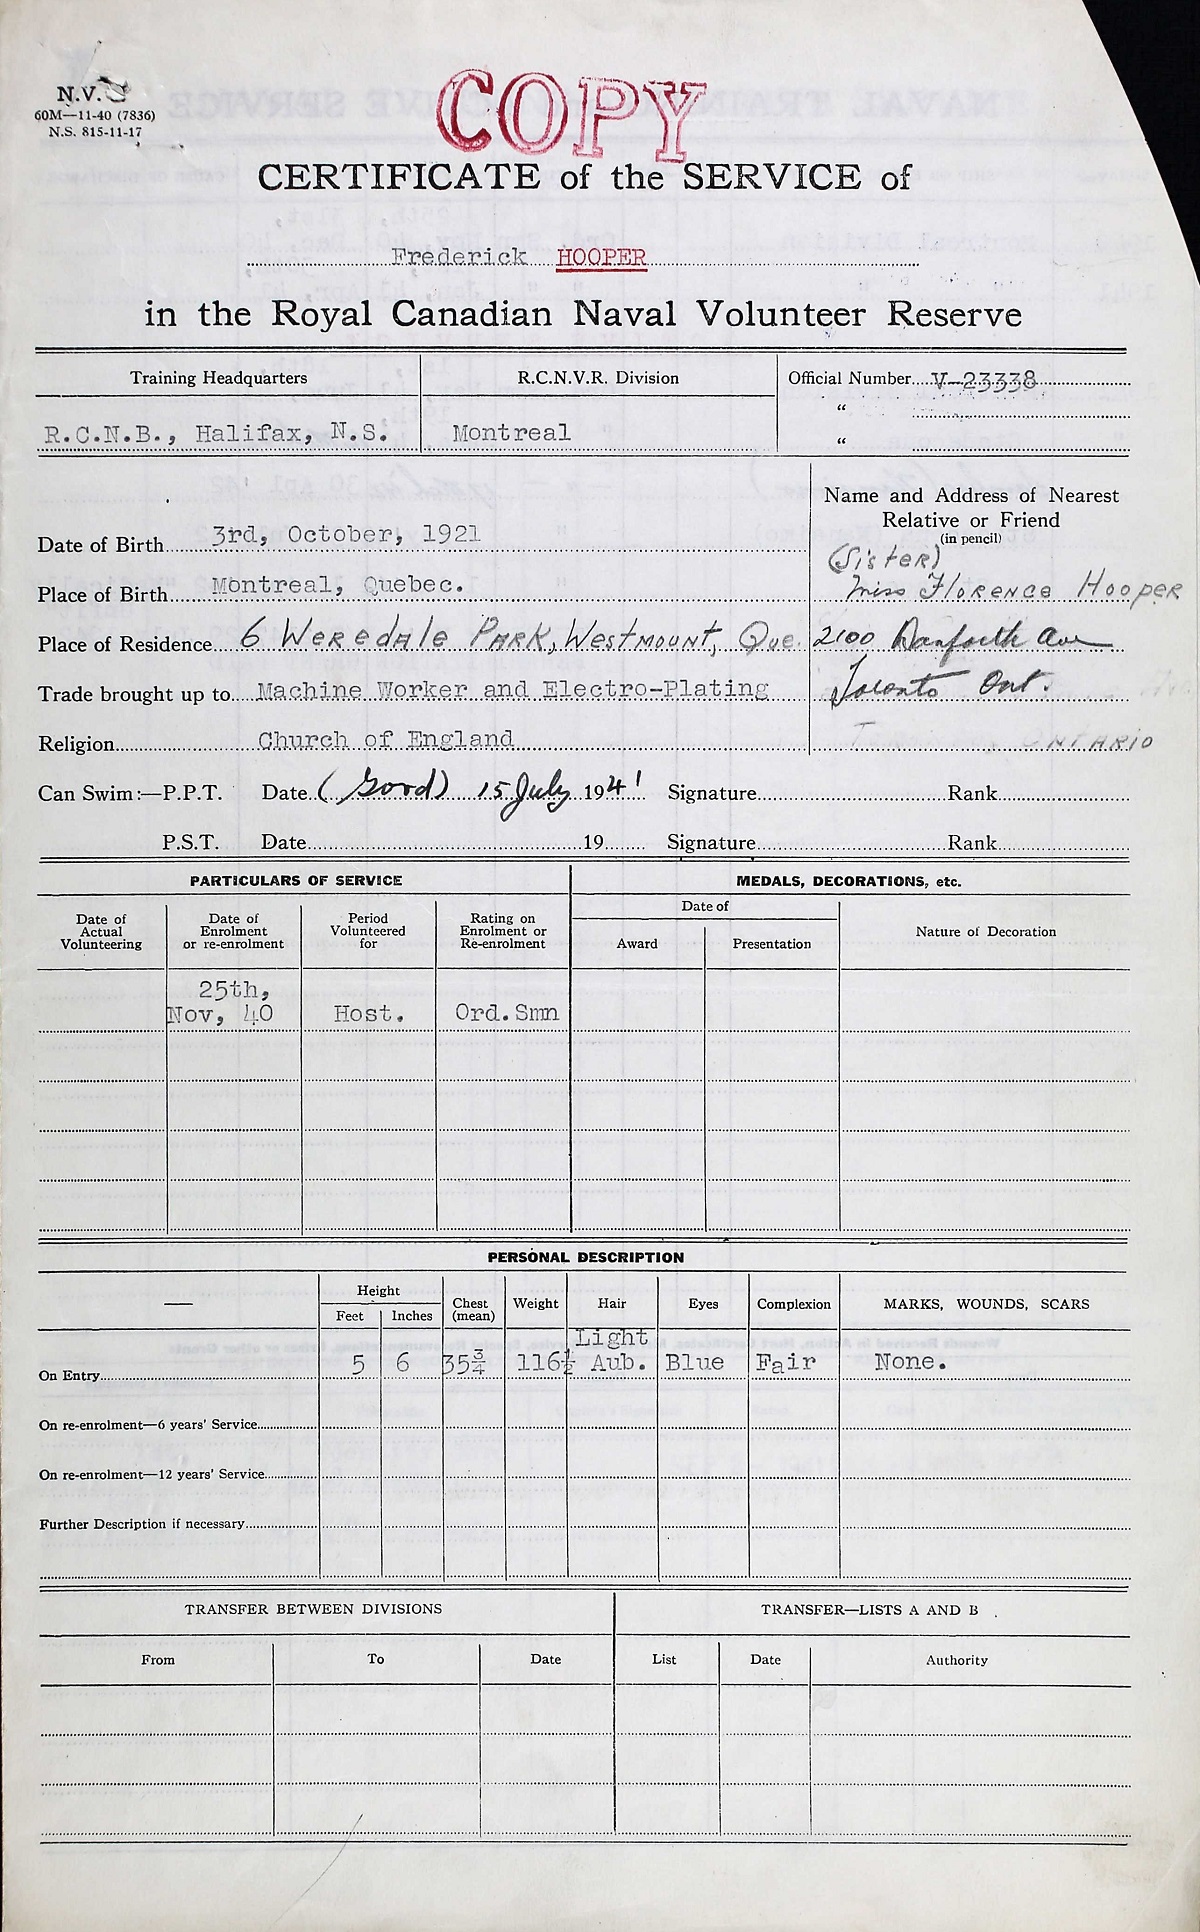 COPY
N.V.
60M—11-40 (7836)
N.S. 815-11-17
CERTIFICATE of the SERVICE of
Frederick HOOPER
in the Royal Canadian Naval Volunteer Reserve
Training Headquarters
R.C.N.V.R. Division
Official Number V-23338
"
R.C.N.B., Halifax, N.S.
Montreal
"
Name and Address of Nearest
Relative or Friend
(in pencil)
Date of Birth 3rd, October, 1921
(Sister)
Place of Birth Montreal, Quebec.
Miss Florence Hooper
Place of Residence 6 Weredale Park, Westmount, Que.
2100 Danforth Ave
Trade brought up to Machine Worker and Electro-Plating
Toronto Ont.
Religion Church of England
ONTARIO
Can Swim:—P.P.T. Date (Good) 15 July 1941 Signature Rank
P.S.T. Date 19 Signature Rank
PARTICULARS OF SERVICE
MEDALS, DECORATIONS, etc.
Date of
Actual
Volunteering
Date of
Enrolment
or re-enrolment
Period
Volunteered
for
Rating on
Enrolment or
Re-enrolment
Date of
Award
Presentation
Nature of Decoration
25th,
Nov, 40
Host.
Ord. Smn
PERSONAL DESCRIPTION
—
Height
Feet
Inches
Chest
(mean)
Weight
Hair
Eyes
Complexion
MARKS, WOUNDS, SCARS
Light
On Entry 5 6 35¾ 116½ Aub. Blue Fair None.
On re-enrolment—6 years' Service
On re-enrolment—12 years' Service
Further Description if necessary
TRANSFER BETWEEN DIVISIONS
TRANSFER—LISTS A AND B
From
To
Date
List
Date
Authority